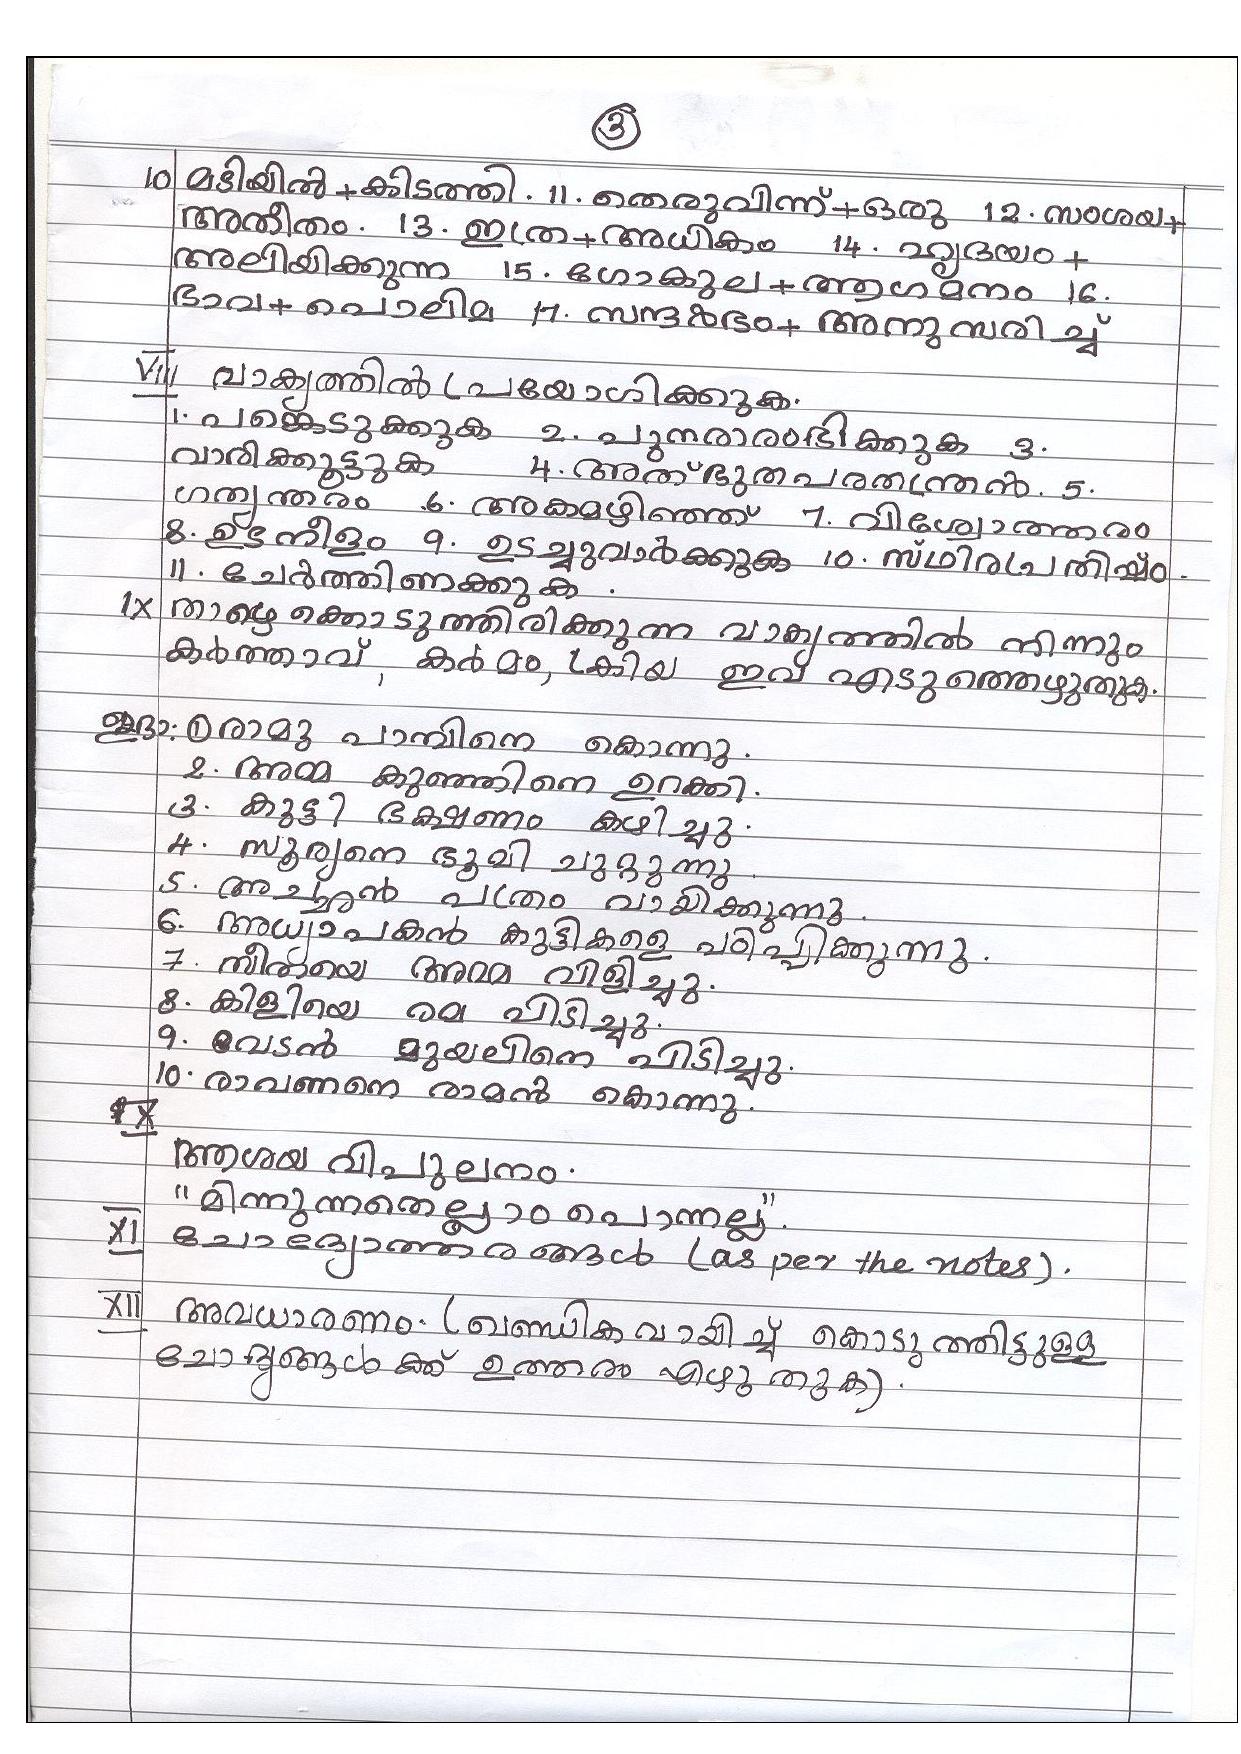 3
10 മടിയിൽ+കിടത്തി. 11. തെരുവിന്ന്+ഒരു 12. സംശയ+
അതീതം. 13. ഇത്ര+അധികം 14. ഹൃദയം+
അലിയിക്കുന്ന 15. ഗോകുല+ആഗമനം 16.
ഭാവ+പൊലിമ 17. സന്ദർഭം+അനുസരിച്ച്
VIII വാക്യത്തിൽ പ്രയോഗിക്കുക.
1. പങ്കെടുക്കുക 2. പുനരാരംഭിക്കുക 3.
വാരിക്കൂട്ടുക 4. അത്ഭുതപരതന്ത്രൻ. 5.
ഗത്യന്തരം 6. അകമഴിഞ്ഞ് 7. വിശ്വോത്തരം
8. ഉടനീളം 9. ഉടച്ചുവാർക്കുക 10. സ്ഥിരപ്രതിഷ്ഠ.
11. ചേർത്തിണക്കുക.
IX താഴെ കൊടുത്തിരിക്കുന്ന വാക്യത്തിൽ നിന്നും
കർത്താവ്, കർമം, ക്രിയ ഇവ എടുത്തെഴുതുക.
ഉദാ: ① രാമു പാമ്പിനെ കൊന്നു.
2. അമ്മ കുഞ്ഞിനെ ഉറക്കി.
3. കുട്ടി ഭക്ഷണം കഴിച്ചു.
4. സൂര്യനെ ഭൂമി ചുറ്റുന്നു.
5. അച്ഛൻ പത്രം വായിക്കുന്നു.
6. അധ്യാപകൻ കുട്ടികളെ പഠിപ്പിക്കുന്നു.
7. സീതയെ അമ്മ വിളിച്ചു.
8. കിളിയെ രമ പിടിച്ചു.
9. വേടൻ മുയലിനെ പിടിച്ചു.
10. രാവണനെ രാമൻ കൊന്നു.
X
ആശയ വിപുലനം.
"മിന്നുന്നതെല്ലാം പൊന്നല്ല".
XI ചോദ്യോത്തരങ്ങൾ (as per the notes).
XII അവധാരണം. (ഖണ്ഡിക വായിച്ച് കൊടുത്തിട്ടുള്ള
ചോദ്യങ്ങൾക്ക് ഉത്തരം എഴുതുക).